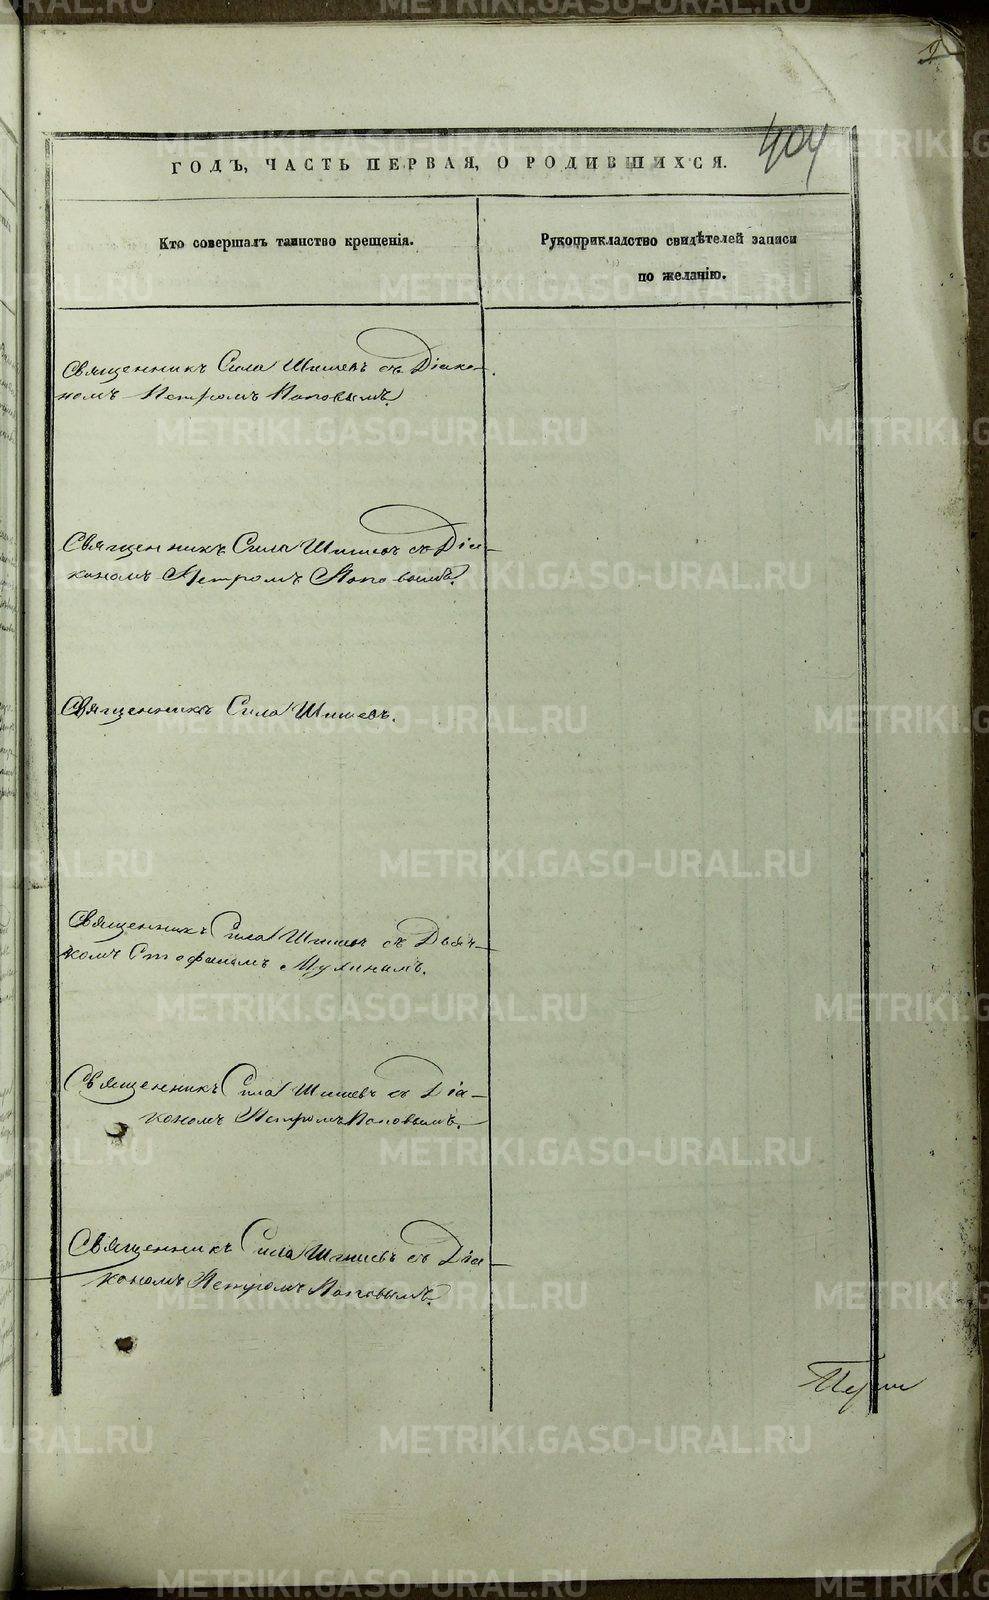 404
ГОДЪ, ЧАСТЬ ПЕРВАЯ, О РОДИВШИХСЯ.
Кто совершалъ таинство крещенія.
Рукоприкладство свидѣтелей записи
по желанію.
Священникъ Сила Шишевъ съ Діако-
номъ Петромъ Поповымъ.
Священникъ Сила Шишевъ съ Діа-
кономъ Петромъ Поповымъ.
Священникъ Сила Шишевъ.
Священникъ Сила Шишевъ съ Дьяч-
комъ Стефаномъ Мухинымъ.
Священникъ Сила Шишевъ съ Діа-
кономъ Петромъ Поповымъ.
Священникъ Сила Шишевъ съ Діа-
кономъ Петромъ Поповымъ.
METRIKI.GASO-URAL.RU